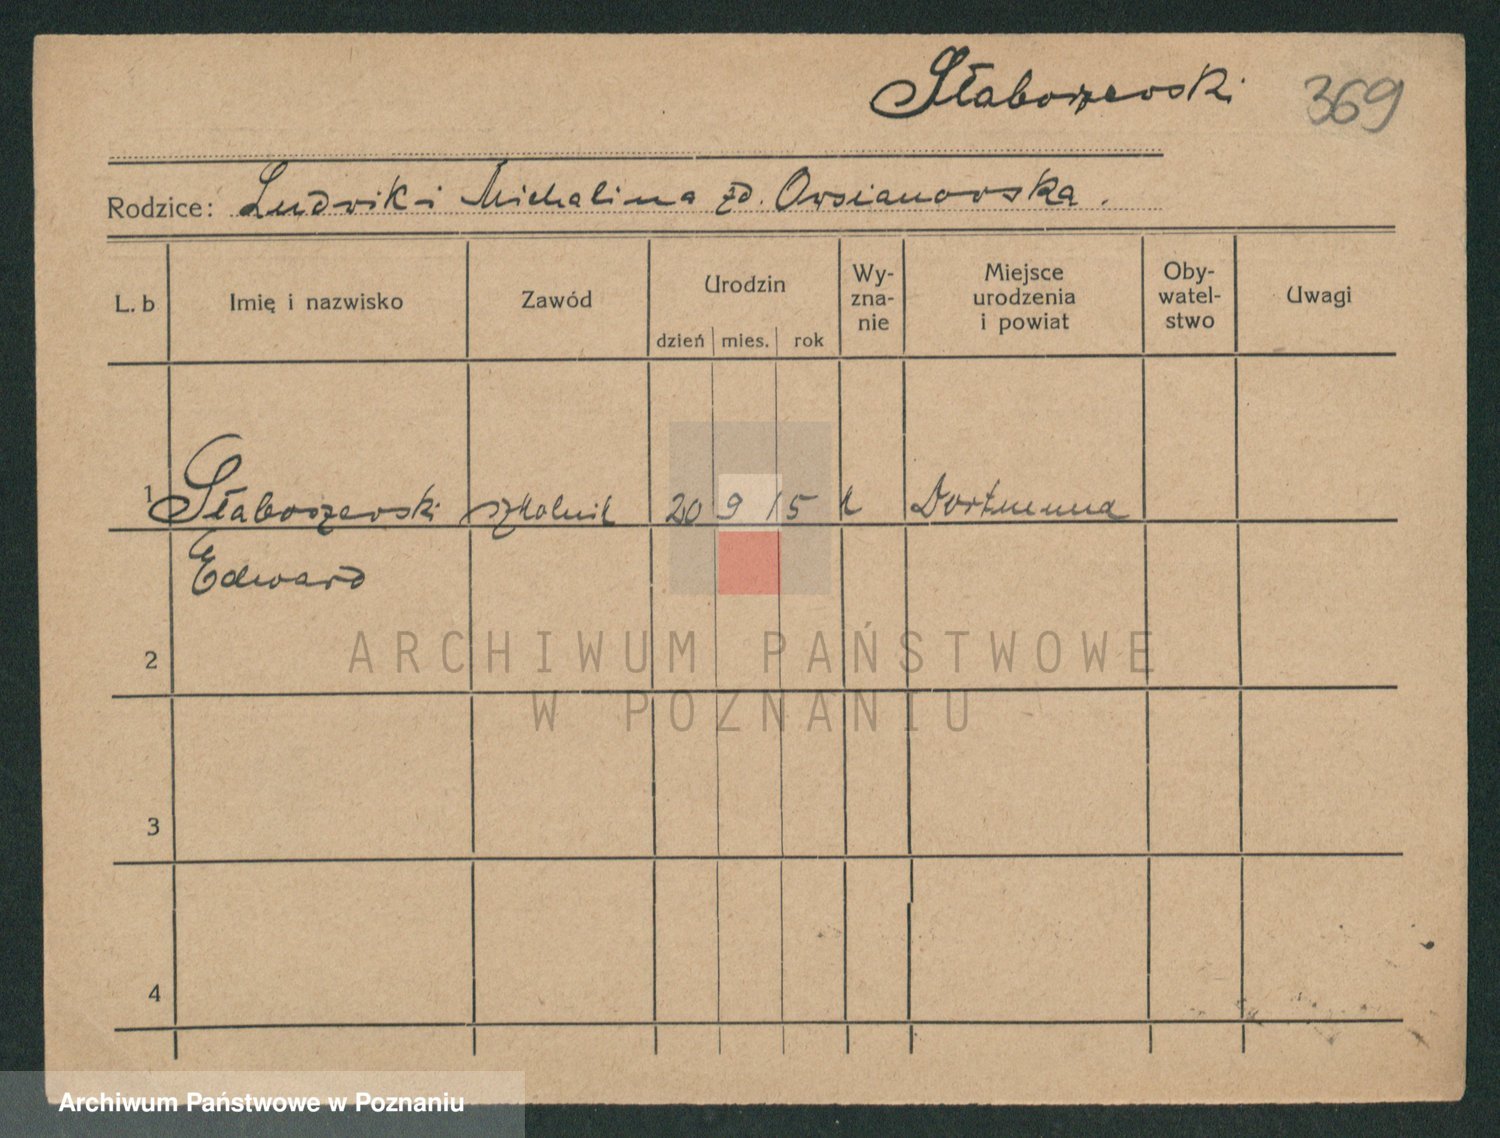 Słaboszewski 369
Rodzice: Ludwik i Michalina zd. Owsianowska.
L. b Imię i nazwisko Zawód Urodzin dzień mies. rok Wy-zna-nie Miejsce urodzenia i powiat Oby-watel-stwo Uwagi
1 Słaboszewski szkolnik 20 9 15 k Dortmund
Edward
2
3
4
ARCHIWUM PAŃSTWOWE
W POZNANIU
Archiwum Państwowe w Poznaniu